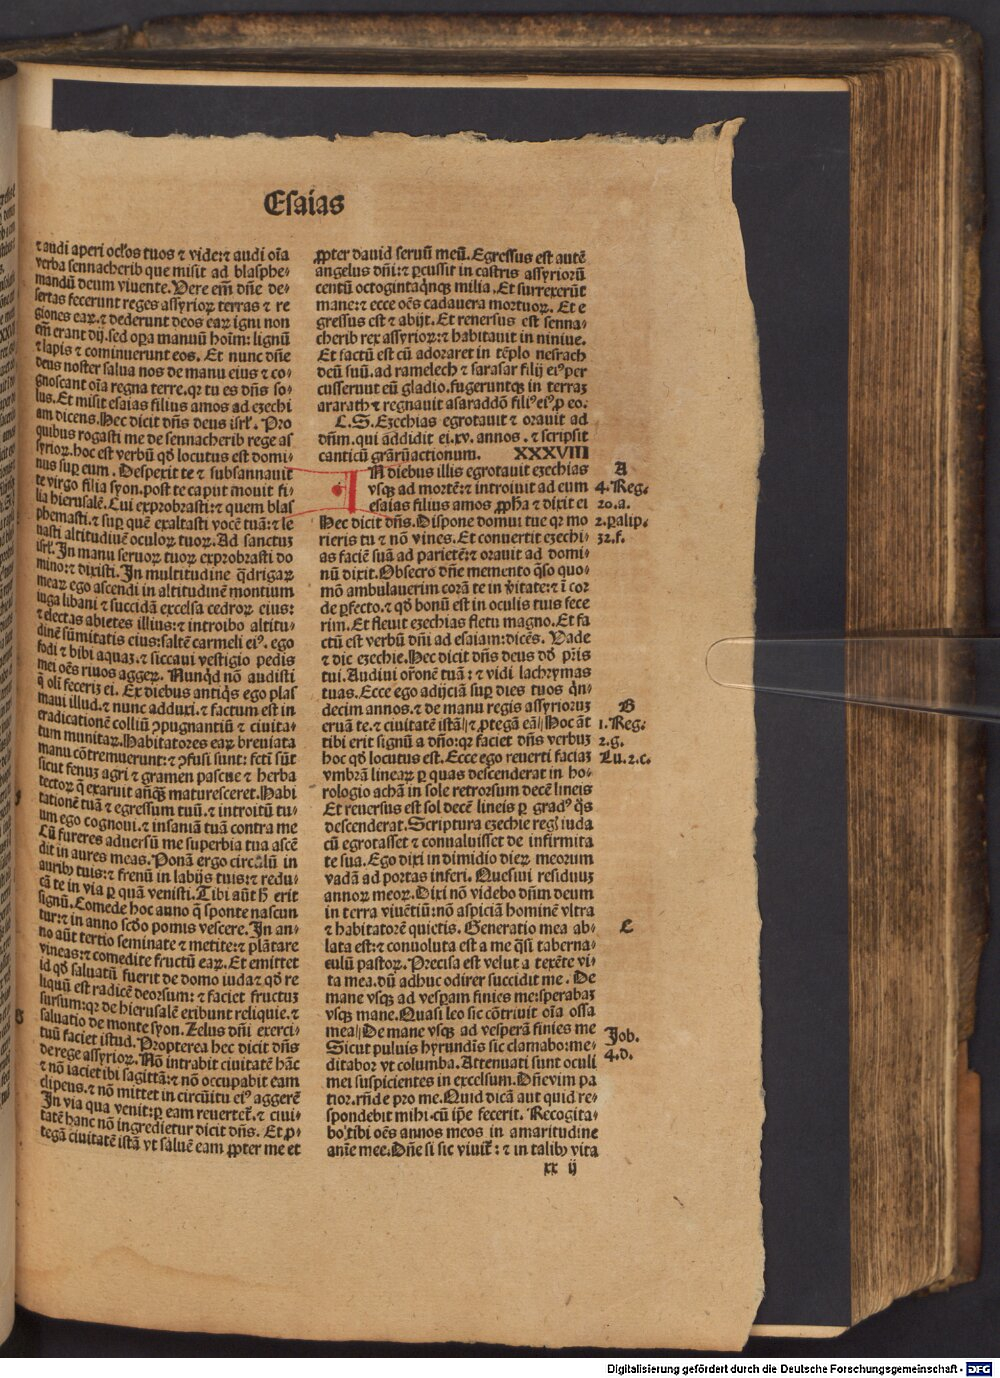 Esaias
⁊ audi aperi ocl'os tuos ⁊ vide:⁊ audi oīa
verba sennacherib que misit ad blasphe-
mandū deum viuente. Vere em̄ dn̄e de-
sertas fecerunt reges assyrioꝝ terras ⁊ re
giones eaꝝ. ⁊ dederunt deos eaꝝ igni non
em̄ erant dij. sed oꝑa manuū hoim: lignū
⁊ lapis ⁊ cominuerunt eos. Et nunc dn̄e
deus noster salua nos de manu eius ⁊ co-
gnoscant oīa regna terre. qꝛ tu es dn̄s so-
lus. Et misit esaias filius amos ad ezechi
am dicens. Hec dicit dn̄s deus isrl'. Pro
quibus rogasti me de sennacherib rege as
syrioꝝ. hoc est verbū qd̄ locutus est domi-
nus suꝑ eum. Despexit te ⁊ subsannauit
te virgo filia syon. post te caput mouit fi-
lia hierusalē. Cui exprobrasti: ⁊ quem blas
phemasti: ⁊ suꝑ quē exaltasti vocē tuā: ⁊ le
uasti altitudinē oculoꝝ tuoꝝ. Ad sanctuꝫ
isrl'. In manu seruoꝝ tuoꝝ exprobrasti do
mino: ⁊ dixisti. In multitudine q̄drigaꝝ
meaꝝ ego ascendi in altitudinē montium
iuga libani ⁊ succidā excelsa cedroꝝ eius:
⁊ electas abietes illius: ⁊ introibo altitu-
dinē sūmitatis eius: saltē carmeli eiꝰ. ego
fodi ⁊ bibi aquaꝫ. ⁊ siccaui vestigio pedis
mei oēs riuos aggeꝝ. Nunqd̄ nō audisti
q̄ oli feceriꝫ ei. Ex diebus antiq̄s ego plas
maui illud. ⁊ nunc adduxi. ⁊ factum est in
eradicationē colliū ꝯpugnantiū ⁊ ciuita-
tum munitaꝝ. Habitatores eaꝝ breuiata
manu cōtremuerunt: ⁊ ꝯfusi sunt: fcti sūt
sicut fenuꝫ agri ⁊ gramen pascue ⁊ herba
tectoꝝ q̄ exaruit anq̄ꝫ maturesceret. Habi
tationē tuā ⁊ egressum tuū. ⁊ introitū tu-
um ego cognoui. ⁊ insaniā tuā contra me
Cū fureres aduersū me superbia tua ascē
dit in aures meas. Ponā ergo circulū in
auribꝰ tuis: ⁊ frenū in labijs tuis: ⁊ redu-
cā te in via ꝑ quā venisti. Tibi aūt h̄ erit
signū. Comede hoc anno q̄ sponte nascun
tur: ⁊ in anno scd̄o pomis vescere. In an-
no aūt tertio seminate ⁊ metite: ⁊ plātare
vineas: ⁊ comedite fructū eaꝝ. Et emittet
id qd̄ saluatū fuerit de domo iuda ⁊ qd̄ re
liquū est radicē deorsum: ⁊ faciet fructuꝫ
sursum: qꝛ de hierusalē exibunt reliquie. ⁊
saluatio de monte syon. Zelus dn̄i exerci-
tuū faciet istud. Propterea hec dicit dn̄s
de rege assyrioꝝ. Nō intrabit ciuitatē hāc
⁊ nō iaciet ibi sagittā: ⁊ nō occupabit eam
clipeus. ⁊ nō mittet in circuitu eiꝰ aggerē
In via qua venit: ꝑ eam reuertet'. ⁊ ciui-
tatē hanc nō ingredietur dicit dn̄s. Et ꝓ-
tegā ciuitatē istā vt saluē eam ꝓpter me et
ꝓpter dauid seruū meū. Egressus est autē
angelus dn̄i: ⁊ ꝑcussit in castris assyrioꝝ
centū octogintaq̄nqꝫ milia. Et surrexerūt
mane: ⁊ ecce oēs cadauera mortuoꝝ. Et e
gressus est ⁊ abijt. Et reuersus est senna-
cherib rex assyrioꝝ: ⁊ habitauit in niniue.
Et factū est cū adoraret in tēplo nesrach
deū suū. ad ramelech ⁊ sarasar filij eiꝰ per
cusserunt eū gladio. fugeruntqꝫ in terraꝫ
ararath ⁊ regnauit asaraddō filiꝰ eiꝰ ꝓ eo.
C.S. Ezechias egrotauit ⁊ orauit ad
dn̄m. qui addidit ei. xv. annos. ⁊ scripsit
canticū gr̄aꝝ actionum. XXXVIII
IN diebus illis egrotauit ezechias
vsqꝫ ad mortē: ⁊ introiuit ad eum
esaias filius amos ꝓpha ⁊ dixit ei
Hec dicit dn̄s. Dispone domui tue qꝛ mo
rieris tu ⁊ nō viues. Et conuertit ezechi-
as faciē suā ad parietē: ⁊ orauit ad domi-
nū dixit. Obsecro dn̄e memento q̄so quo-
mō ambulauerim corā te in v̄itate: ⁊ ī cor
de ꝑfecto. ⁊ qd̄ bonū est in oculis tuis fece
rim. Et fleuit ezechias fletu magno. Et fa
ctū est verbū dn̄i ad esaiam: dicēs. Vade
⁊ dic ezechie. Hec dicit dn̄s deus dd̄ pr̄is
tui. Audiui or̄onē tuā: ⁊ vidi lachrymas
tuas. Ecce ego adijciā suꝑ dies tuos q̄n-
decim annos. ⁊ de manu regis assyrioruꝫ
eruā te. ⁊ ciuitatē istā|| ⁊ ꝓtegā eā|| Hoc āt
tibi erit signū a dn̄o: qꝛ faciet dn̄s verbuꝫ
hoc qd̄ locutus est. Ecce ego reuerti faciaꝫ
vmbrā lineaꝝ ꝑ quas descenderat in ho-
rologio achaꝫ in sole retrorsum decē lineis
Et reuersus est sol decē lineis ꝑ gradꝰ q̄s
descenderat. Scriptura ezechie reg' iuda
cū egrotasset ⁊ conualuisset de infirmita
te sua. Ego dixi in dimidio dieꝝ meorum
vadā ad portas inferi. Quesiui residuuꝫ
annoꝝ meoꝝ. Dixi nō videbo dn̄m deum
in terra viuētiū: nō aspiciā hominē vltra
⁊ habitatorē quietis. Generatio mea ab-
lata est: ⁊ conuoluta est a me q̄si taberna-
culū pastoꝝ. Precisa est velut a texēte vi-
ta mea. dū adhuc odirer succidit me. De
mane vsqꝫ ad vesꝑam finies me: sperabaꝫ
vsqꝫ mane. Quasi leo sic cōtriuit oīa ossa
mea|| De mane vsqꝫ ad vesperā finies me
Sicut puluis hyrundīs sic clamabo: me-
ditabor vt columba. Attenuati sunt oculi
mei suspicientes in excelsum. Dn̄e vim pa
tior. rn̄de pro me. Quid dicā aut quid re-
spondebit mihi. cū ip̄e fecerit. Recogita-
bo: tibi oēs annos meos in amaritudine
anīe mee. Dn̄e si sic viuit': ⁊ in talibꝰ vita
xx ij
A
4. Reg.
20. a.
2. ꝑalip.
32. f.
B
1. Reg.
2. g.
Lu. 2. c.
C
Job.
4. d.
Digitalisierung gefördert durch die Deutsche Forschungsgemeinschaft - DFG